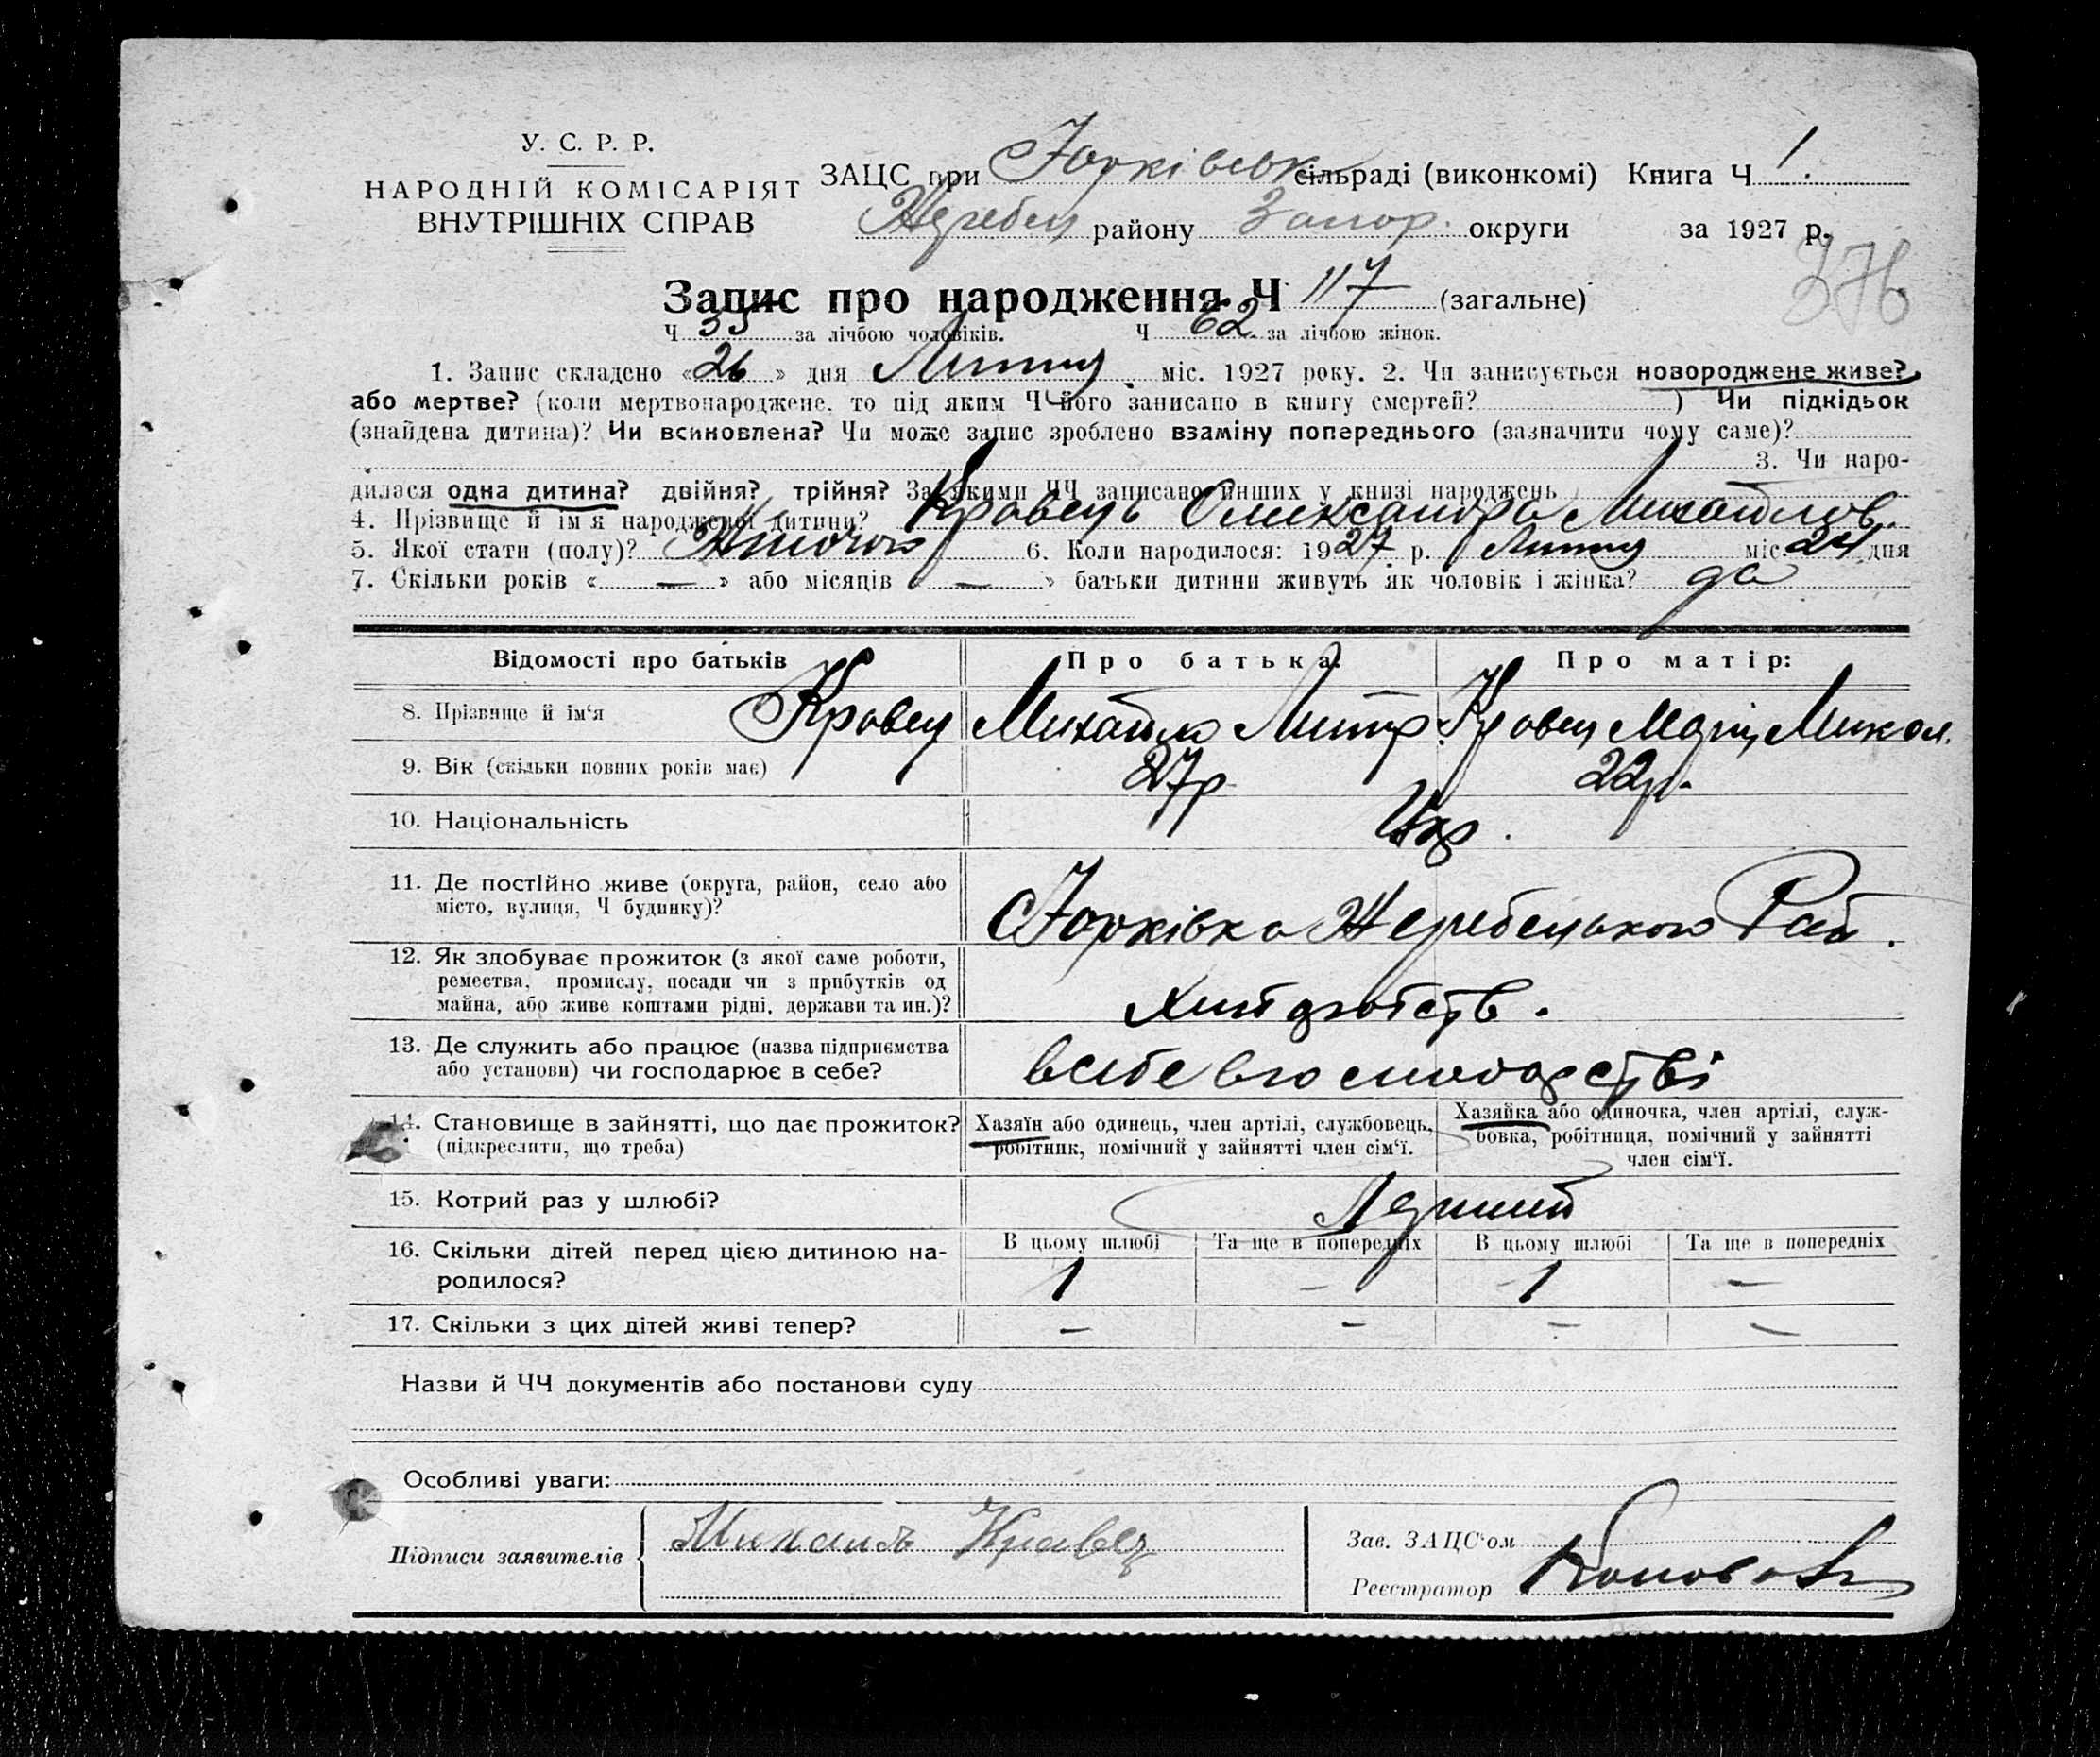 У. С. Р. Р.
НАРОДНІЙ КОМІСАРІЯТ
ВНУТРІШНІХ СПРАВ
ЗАЦС при Юрківськ сільраді (виконкомі) Книга Ч 1.
Жеребец району Запор. округи за 1927 р.
376
Запис про народження Ч 117 (загальне)
Ч 55 за лічбою чоловіків. Ч 62 за лічбою жінок.
1. Запис складено «26» дня Липця міс. 1927 року. 2. Чи записується новороджене живе?
або мертве? (коли мертвонароджене, то під яким Ч його записано в книгу смертей? ) Чи підкідьок
(знайдена дитина)? Чи всиновлена? Чи може запис зроблено взаміну попереднього (зазначити чому саме)?
3. Чи наро-
дилася одна дитина? двійня? трійня? За якими ЧЧ записано инших у книзі народжень
4. Прізвище й ім'я народженої дитини? Кравець Олександра Михайлов.
5. Якої стати (полу)? Жіночої 6. Коли народилося: 1927 р. Липця міс. 24 дня
7. Скільки років «—» або місяців «—» батьки дитини живуть як чоловік і жінка? да
Відомості про батьків Про батька: Про матір:
8. Прізвище й ім'я Кравец Михайло Дмитр. Кравец Марія Микол.
9. Вік (скільки повних років має) 27р 22р.
10. Національність Укр.
11. Де постійно живе (округа, район, село або
місто, вулиця, Ч будинку)? Юрківка Жеребецького Рай.
12. Як здобуває прожиток (з якої саме роботи,
ремества, промислу, посади чи з прибутків од
майна, або живе коштами рідні, держави та ин.)? хліборобств.
13. Де служить або працює (назва підприємства
або установи) чи господарює в себе? в себе в господарстві
14. Становище в зайнятті, що дає прожиток?
(підкреслити, що треба)
Хазяїн або одинець, член артілі, службовець,
робітник, помічний у зайнятті член сім'ї.
Хазяйка або одиночка, член артілі, служ-
бовка, робітниця, помічний у зайнятті
член сім'ї.
15. Котрий раз у шлюбі? Перший
16. Скільки дітей перед цією дитиною на-
родилося?
В цьому шлюбі Та ще в попередніх В цьому шлюбі Та ще в попередніх
1 — 1 —
17. Скільки з цих дітей живі тепер? — — — —
Назви й ЧЧ документів або постанови суду
Особливі уваги:
Підписи заявителів Михаилъ Кравец
Зав. ЗАЦС'ом
Реєстратор